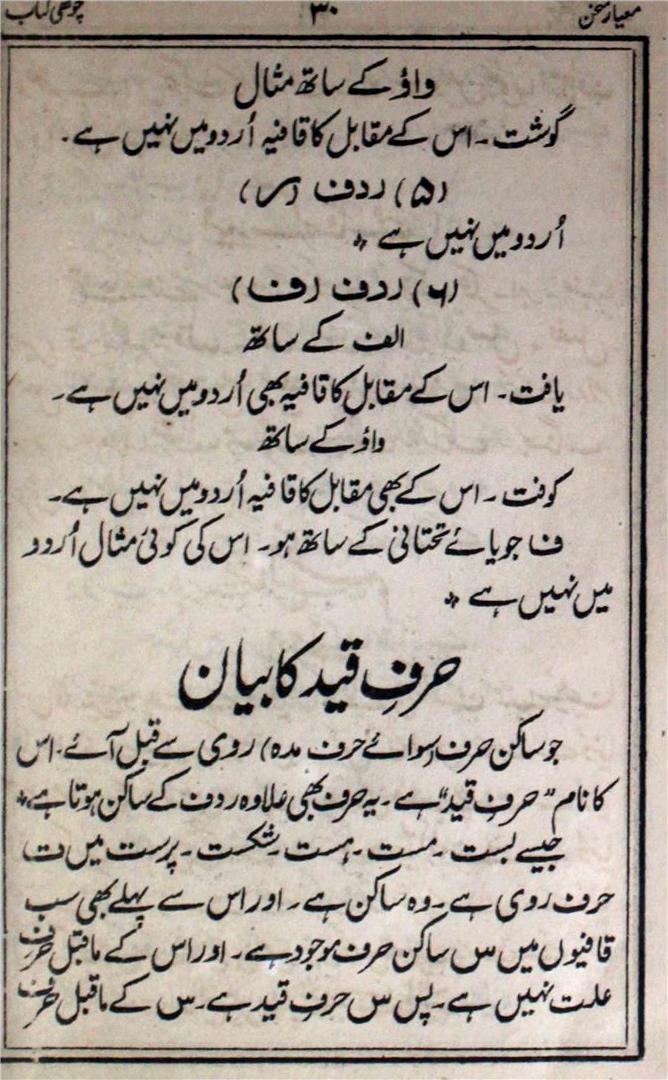 معیار سخن ۳۰ چوتھی کتاب
واؤ کے ساتھ مثال
گوشت ۔ اس کے مقابل کا قافیہ اُردو میں نہیں ہے ۔
(۵) ردف (ر)
اُردو میں نہیں ہے ٭
(۶) ردف (ف)
الف کے ساتھ
یافت ۔ اس کے مقابل کا قافیہ بھی اُردو میں نہیں ہے ۔
واؤ کے ساتھ
کوفت ۔ اس کے بھی مقابل کا قافیہ اُردو میں نہیں ہے ۔
فا جو یائے تحتانی کے ساتھ ہو ۔ اس کی کوئی مثال اُردو
میں نہیں ہے ٭
حرفِ قید کا بیان
جو ساکن حرف (سوائے حرف مدہ) روی سے قبل آئے ۔ اس
کا نام "حرفِ قید" ہے ۔ یہ حرف بھی علاوہ ردف کے ساکن ہوتا ہے ٭
جیسے بست ۔ مست ۔ ہست ۔ شکست ۔ پرست میں ت
حرف روی ہے ۔ وہ ساکن ہے ۔ اور اس سے پہلے بھی سب
قافیوں میں س ساکن حرف موجود ہے ۔ اور اس کے ماقبل حرف
علت نہیں ہے ۔ پس س حرفِ قید ہے ۔ س کے ماقبل حرف